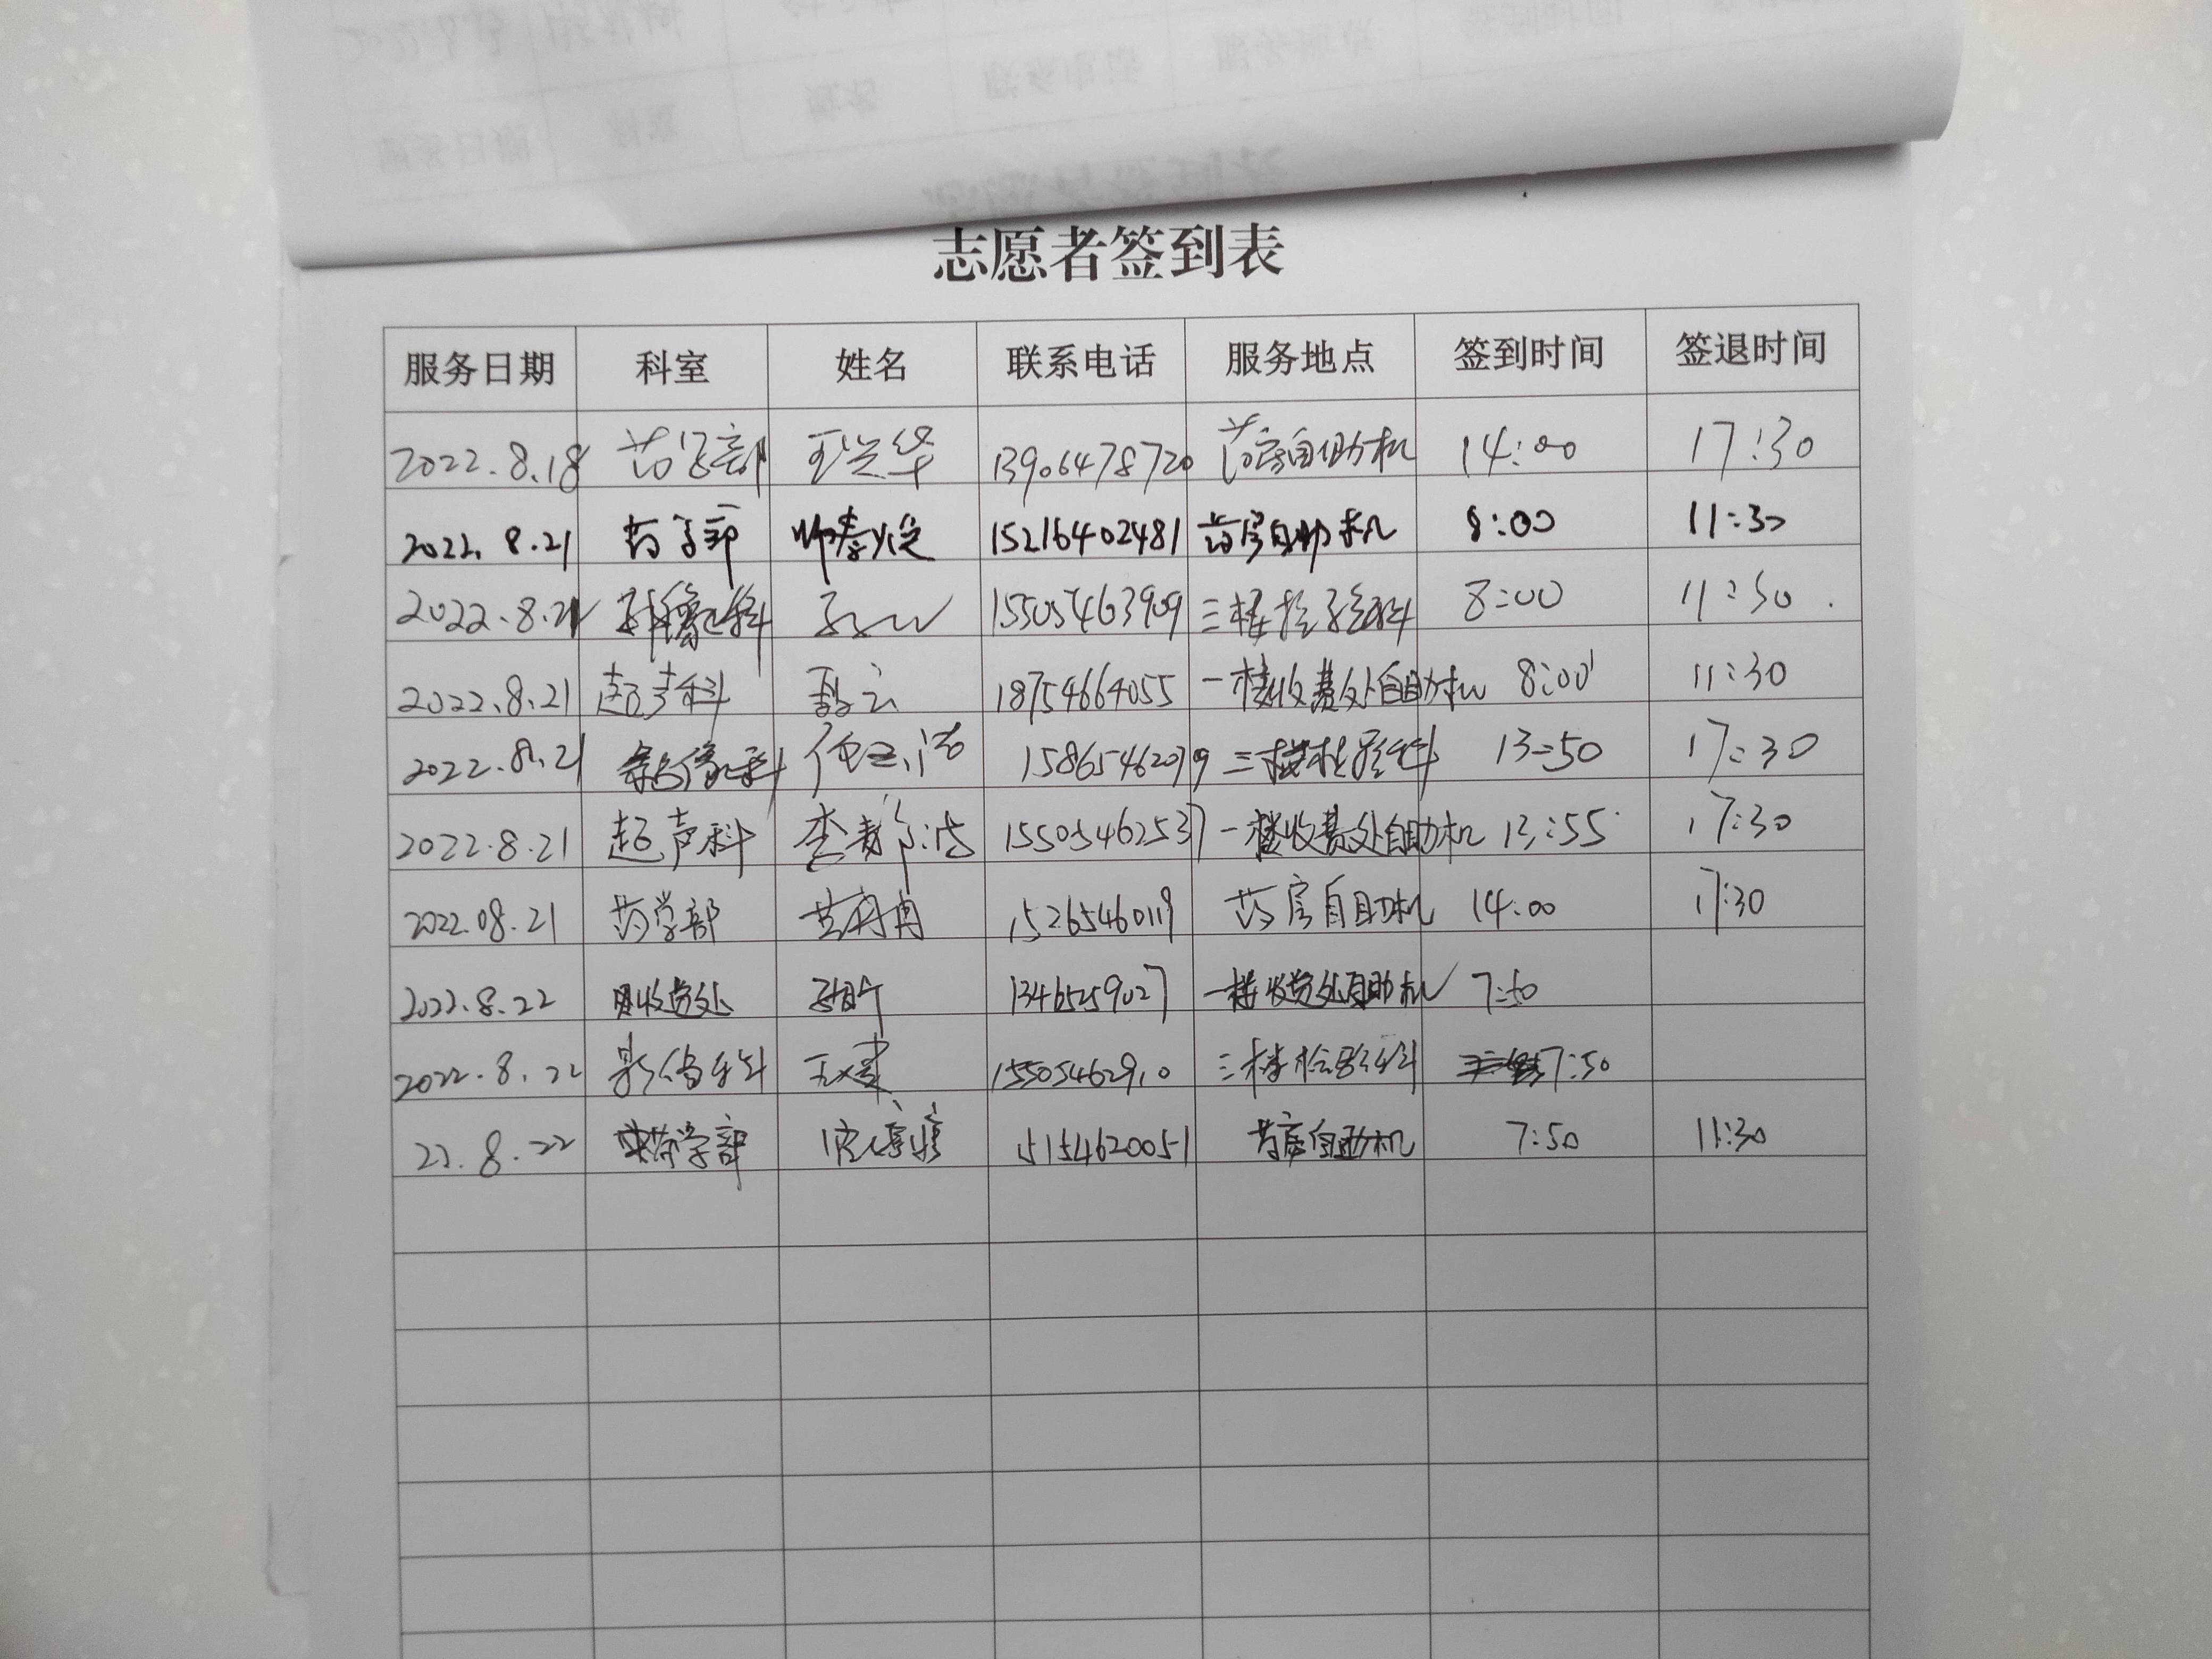 志愿者签到表
服务日期 科室 姓名 联系电话 服务地点 签到时间 签退时间
2022.8.18 药学部 王兴华 13906478720 药房自助机 14:00 17:30
2022.8.21 药学部 15216402481 药房自助机 8:00 11:30
2022.8.21 影像科 15505463909 三楼检验科 8:00 11:30
2022.8.21 超声科 18754664055 一楼收费处自助机 8:00 11:30
2022.8.21 影像科 15865462079 三楼 13:50 17:30
2022.8.21 超声科 15505462537 一楼收费处自助机 13:55 17:30
2022.08.21 药学部 15265460119 药房自助机 14:00 17:30
2022.8.22 收费处 13465259027 一楼收费处自助机 7:50
2022.8.22 影像科 15505462910 三楼 7:50
22.8.22 药学部 药房自助机 7:50 11:30